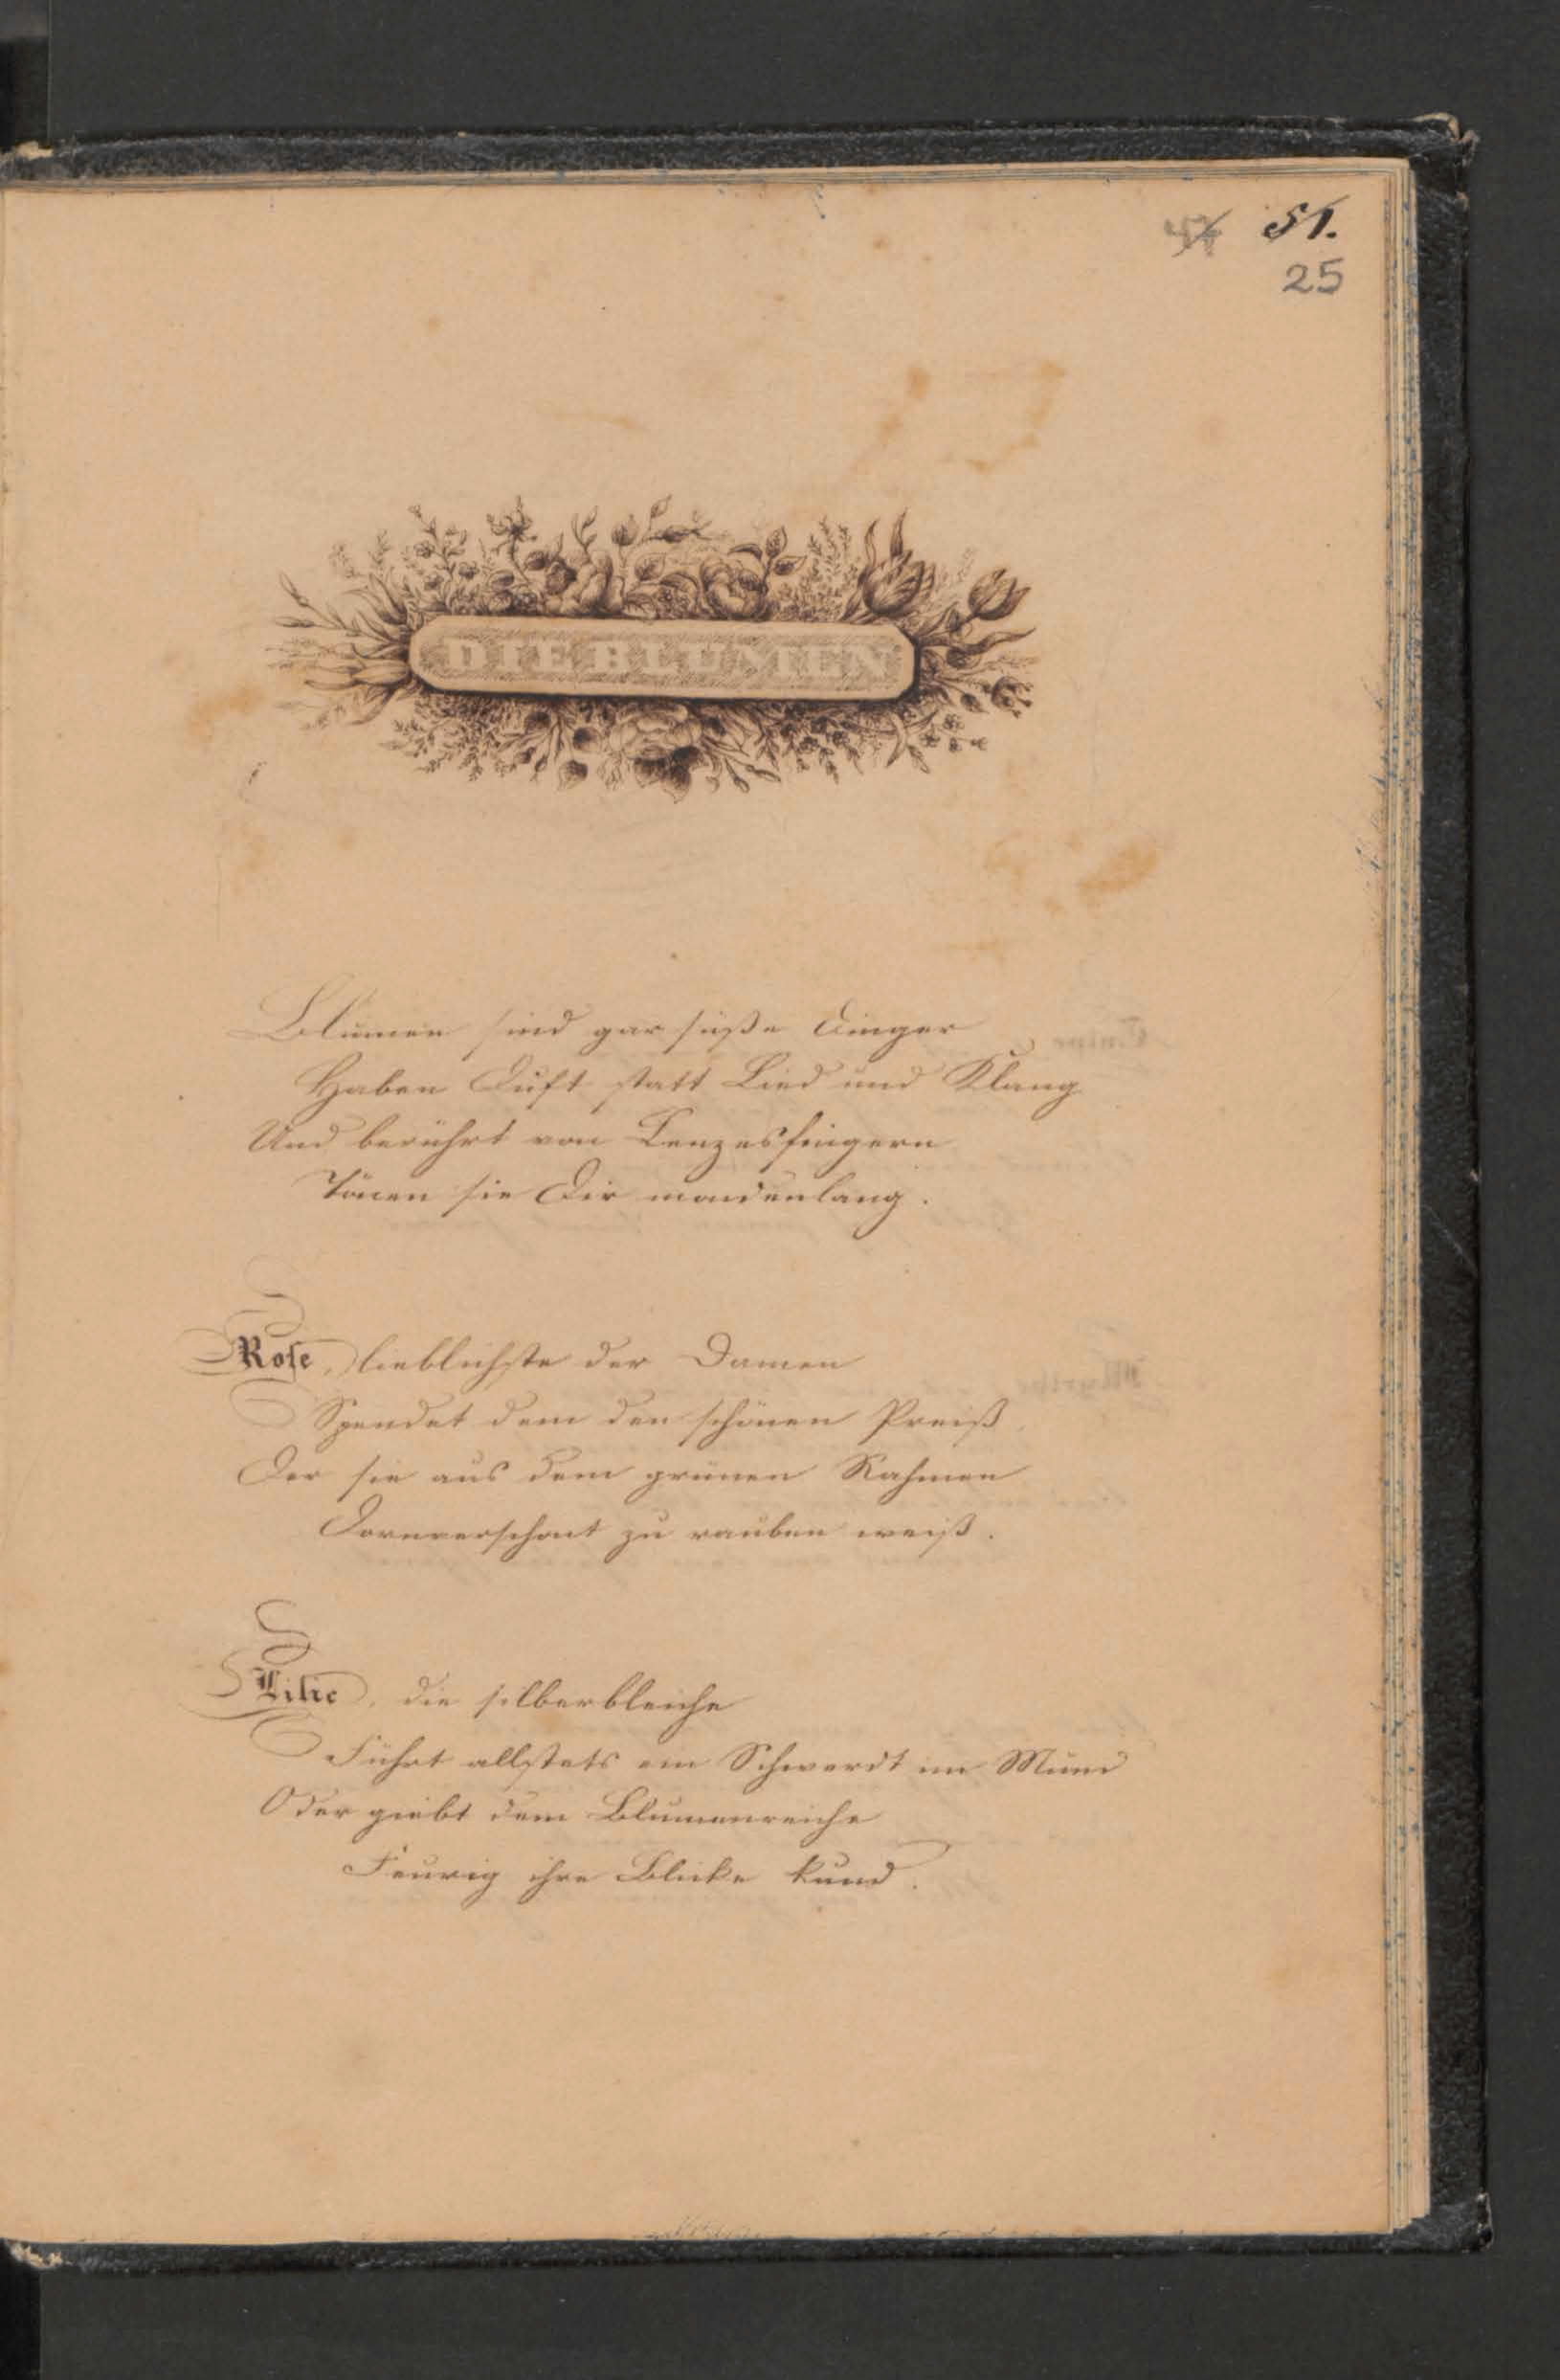 51.
25
DIE BLUMEN
Blumen sind gar süße Dinger
Haben Duft statt Lied und Klang
Und berührt von Lenzesfingern
Tönen sie Dir mondenlang.
Rose, lieblichste der Damen
Spendet dem den schönen Preiß
Der sie aus dem grünen Rahmen
Dornverschont zu rauben weiß.
Lilie, die silberbleiche
Führt allstets ein Schwerdt im Mund
Oder giebt dem Blumenreiche
Feurig ihre Blicke kund.